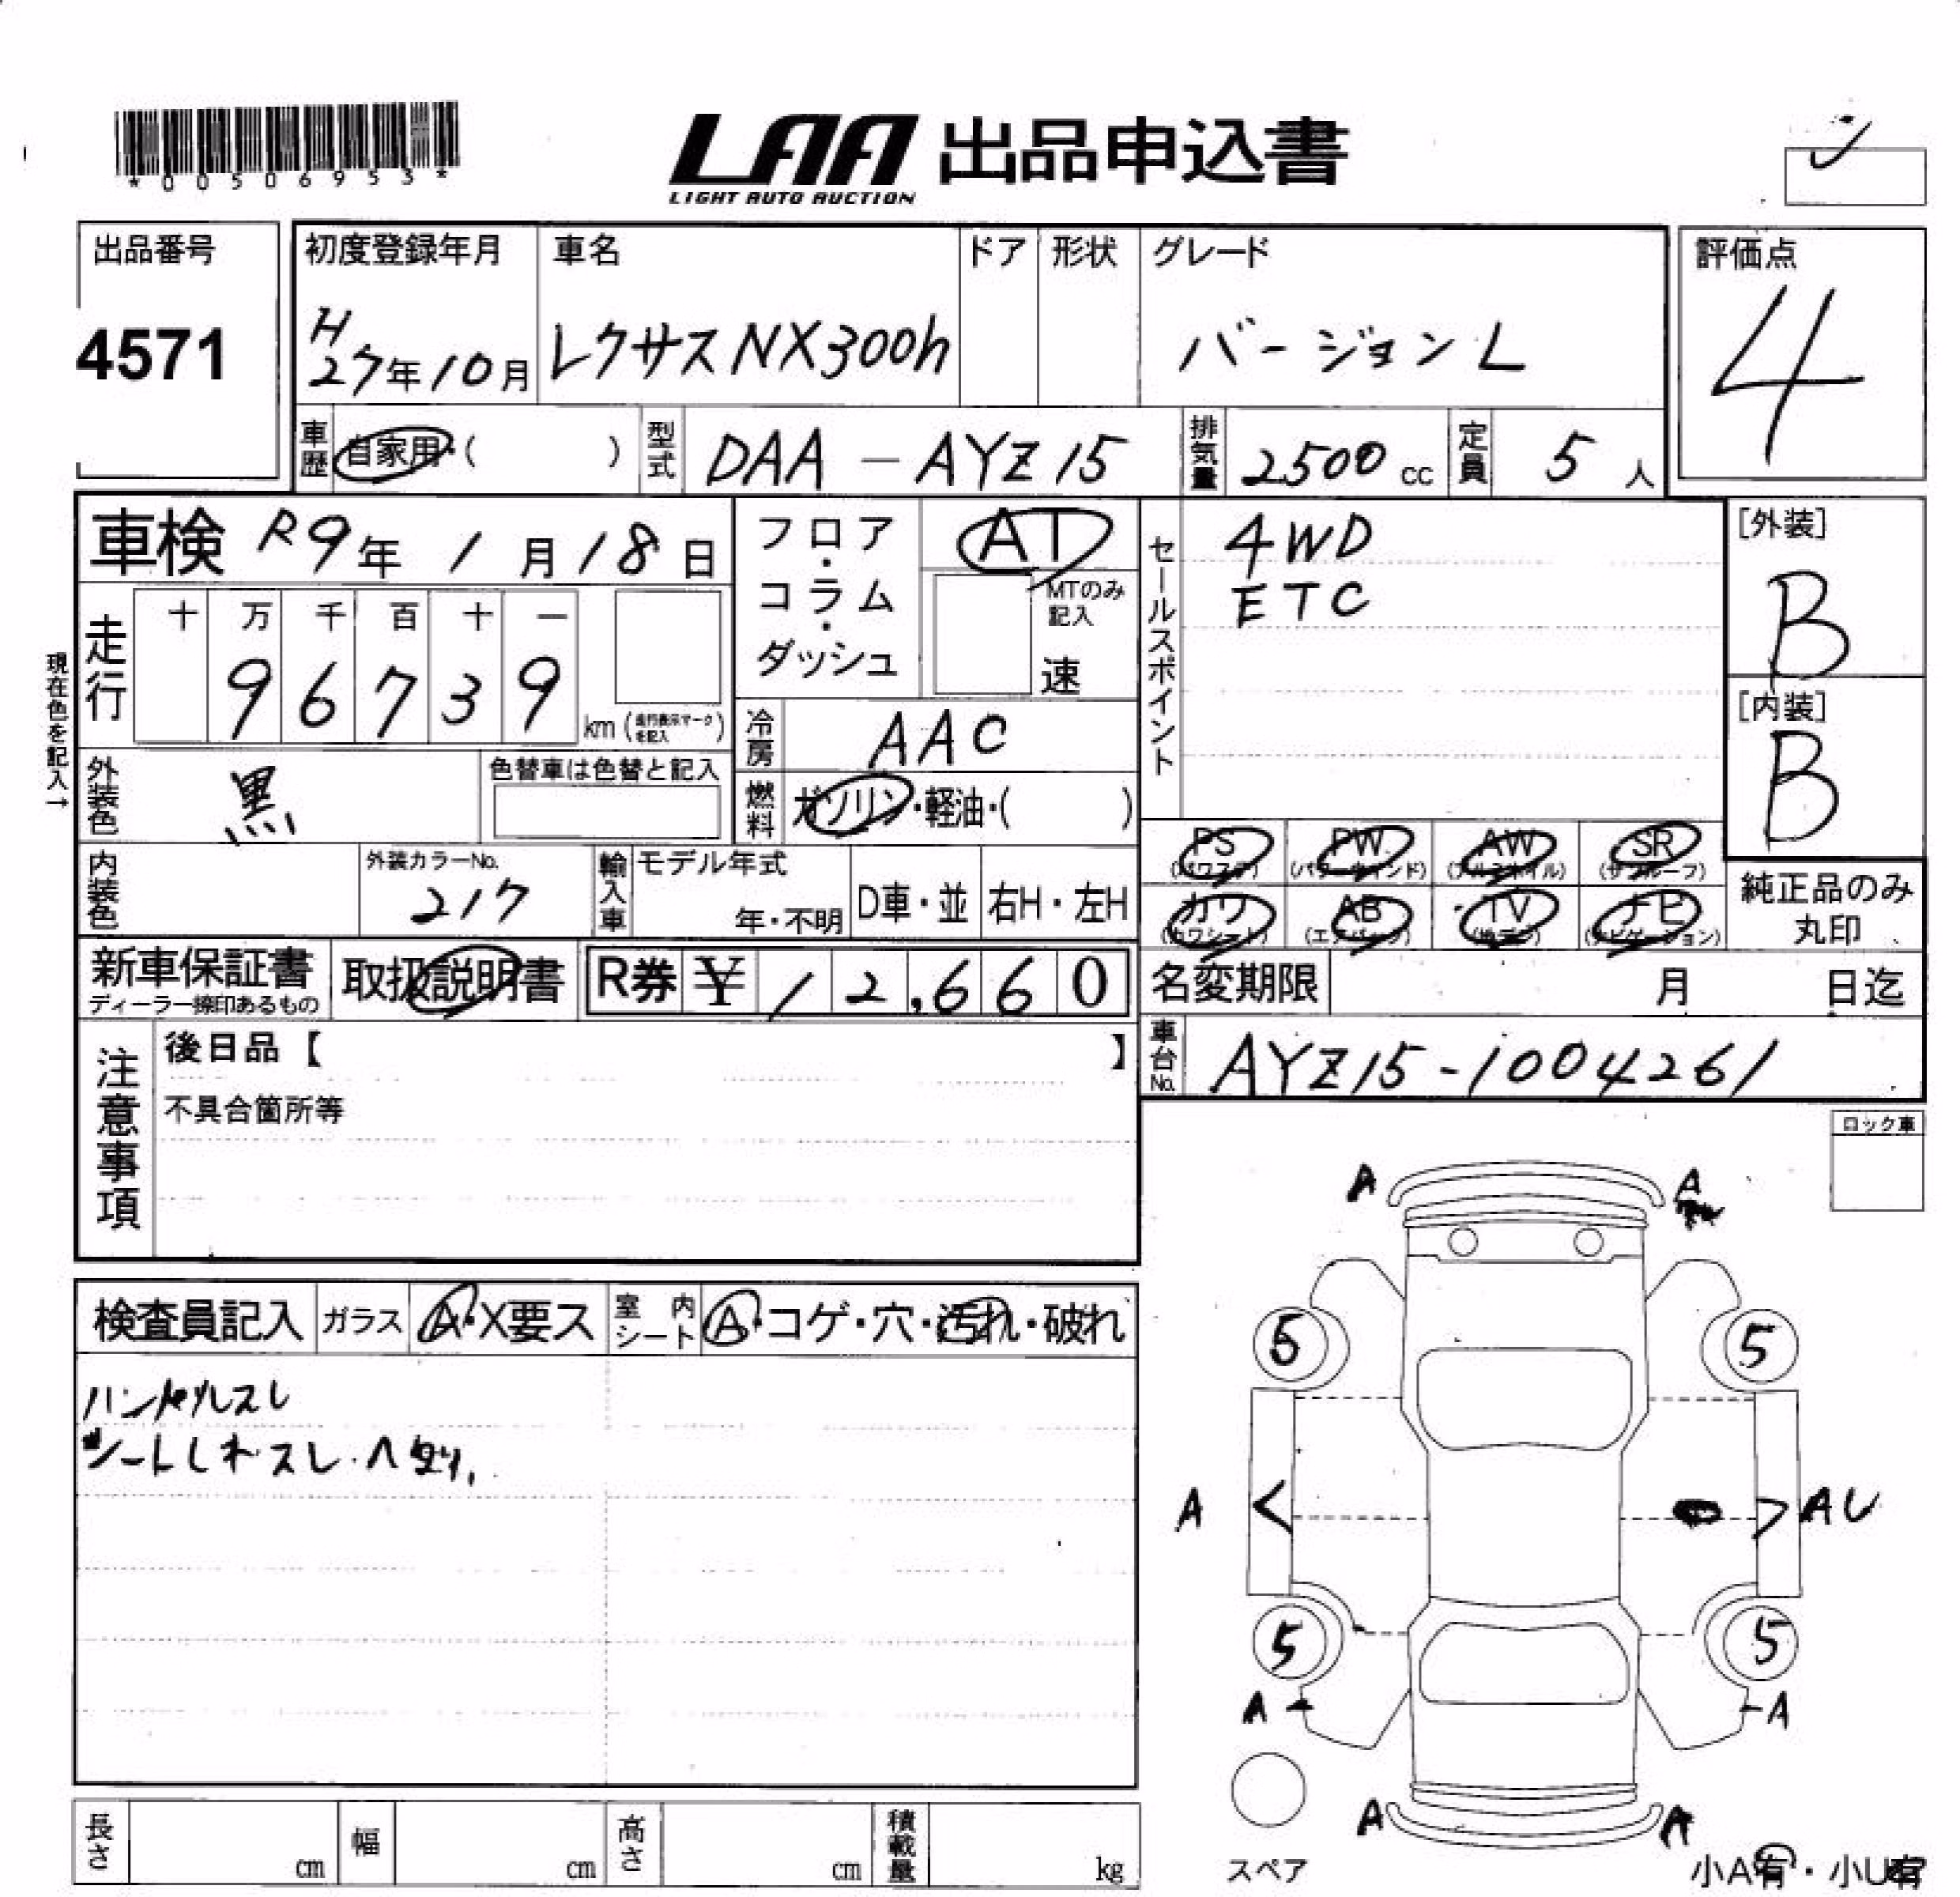 *00506953*
LAA 出品申込書
LIGHT AUTO AUCTION
出品番号
4571
初度登録年月
H27年10月
車名
レクサスNX300h
ドア
形状
グレード
バージョンL
評価点
4
車歴
自家用・( )
型式
DAA-AYZ15
排気量
2500cc
定員
5人
車検 R9年1月18日
フロア・コラム・ダッシュ
AT
MTのみ記入
速
セールスポイント
4WD
ETC
[外装]
B
[内装]
B
現在色を記入→
走行
十 万 千 百 十 一
9 6 7 3 9
km (走行表示マークを記入)
冷房
AAC
外装色
黒
色替車は色替と記入
燃料
ガソリン・軽油・( )
内装色
外装カラーNo.
217
輸入車
モデル年式
年・不明
D車・並
右H・左H
PS (パワステ)
PW (パワーウィンド)
AW (アルミホイル)
SR (サンルーフ)
カワ (カワシート)
AB (エアバッグ)
TV (地デジ)
ナビ (ナビゲーション)
純正品のみ
丸印
新車保証書
ディーラー捺印あるもの
取扱説明書
R券 ¥12,660
名変期限
月 日迄
車台No.
AYZ15-1004261
注意事項
後日品【 】
不具合箇所等
ロック車
検査員記入
ガラス
A・X要ス
室内シート
A・コゲ・穴・汚れ・破れ
ハンドルスレ
シートしわスレ・ヘタリ
A A
5 5
A AU
5 5
A A
A A
スペア
小A有・小U有
長さ cm
幅 cm
高さ cm
積載量 kg